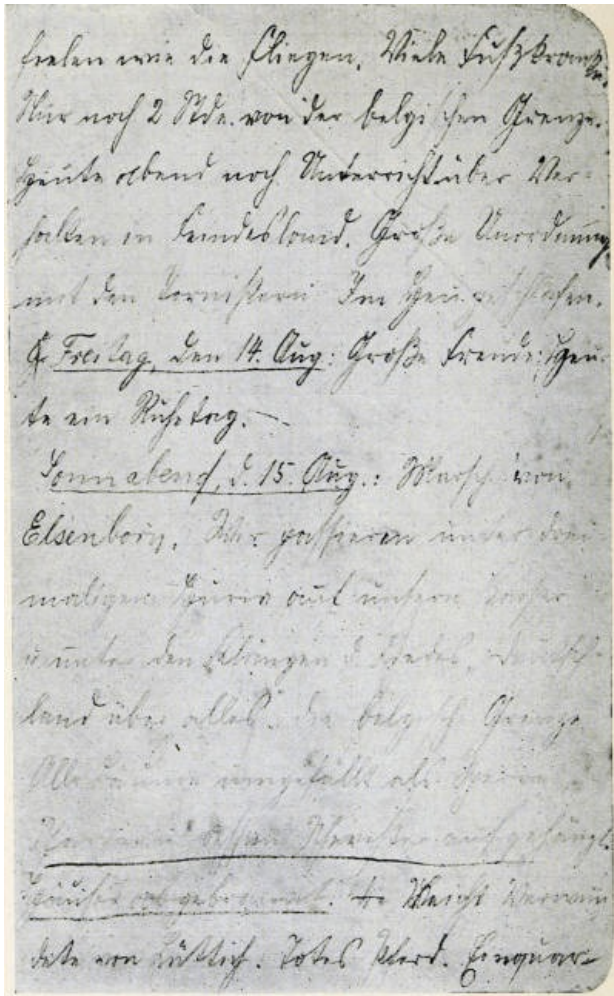 fielen wie die Fliegen. Viele Fußkranke.
Nur noch 2 Stde. von der belgischen Grenze.
Heute abend noch Unterricht über Ver-
halten in Feindesland. Große Unordnung
mit den Tornistern Im Heu geschlafen.
Freitag, den 14. Aug: Große Freude: Heu-
te ein Ruhetag. —
Sonnabend, d. 15. Aug.: Marsch von
Elsenborn. Wir passieren unter drei-
maligem Hurra auf unsern Kaiser
u. unter den Klängen d. Liedes, Deutsch-
land über alles die belgische Grenze
Alle Bäume umgefällt als
aufgehängt
Häuser abgebrannt. Leicht Verwun-
dete von Lüttich. Totes Pferd. Einquar-